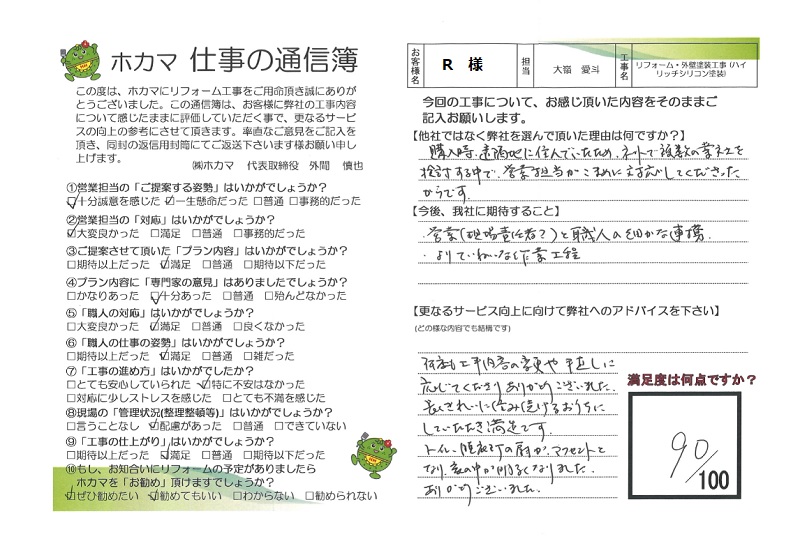 ホカマ 仕事の通信簿
この度は、ホカマにリフォーム工事をご用命頂き誠にありが
とうございました。この通信簿は、お客様に弊社の工事内容
について感じたままに評価していただく事で、更なるサービ
スの向上の参考にさせて頂きます。率直なご意見をご記入を
頂き、同封の返信用封筒にてご返送下さいます様お願い申し
上げます。
㈱ホカマ 代表取締役 外間 慎也
①営業担当の「ご提案する姿勢」はいかがでしょうか?
☑十分誠意を感じた ☑一生懸命だった □普通 □事務的だった
②営業担当の「対応」はいかがでしょうか?
☑大変良かった □満足 □普通 □事務的だった
③ご提案させて頂いた「プラン内容」はいかがでしょうか?
□期待以上だった ☑満足 □普通 □期待以下だった
④プラン内容に「専門家の意見」はありましたでしょうか?
□かなりあった ☑十分あった □普通 □殆んどなかった
⑤「職人の対応」はいかがでしょうか?
□大変良かった ☑満足 □普通 □良くなかった
⑥「職人の仕事の姿勢」はいかがでしょうか?
□期待以上だった ☑満足 □普通 □雑だった
⑦「工事の進め方」はいかがでしたか?
□とても安心していられた ☑特に不安はなかった
□対応に少しストレスを感じた □とても不満を感じた
⑧現場の「管理状況(整理整頓等)」はいかがでしょうか?
□言うことなし ☑配慮があった □普通 □できていない
⑨「工事の仕上がり」はいかがでしょうか?
□期待以上だった ☑満足 □普通 □期待以下だった
⑩もし、お知合いにリフォームの予定がありましたら
ホカマを「お勧め」頂けますでしょうか?
☑ぜひ勧めたい ☑勧めてもいい □わからない □勧められない
お客様名 R 様 担当 大嶺 愛斗 工事名 リフォーム・外壁塗装工事(ハイ
リッチシリコン塗装)
今回の工事について、お感じ頂いた内容をそのままご
記入お願いします。
【他社ではなく弊社を選んで頂いた理由は何ですか?】
購入時、遠隔地に住んでいたため、ネットで複数の業者を
検討する中で、営業担当がこまめに対応してくださった
からです。
【今後、我社に期待すること】
・営業(現場責任者?)と職人の細かな連携
・よりていねいな作業工程
【更なるサービス向上に向けて弊社へのアドバイスを下さい】
(どの様な内容でも結構です)
何度も工事内容の変更や手直しに
応じてくださりありがとうございました。
長くきれいに住み続けるおうちに
していただき満足です。
トイレ、階段下の扉が、アクセントと
なり、家の中が明るくなりました。
ありがとうございました。
満足度は何点ですか?
90/100